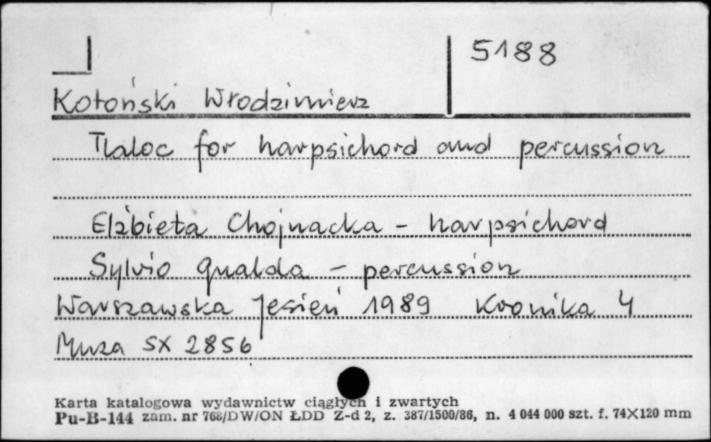 5188
Kotoński Włodzimierz
Tlaloc for harpsichord and percussion
Elżbieta Chojnacka - harpsichord
Sylvio Gualda - percussion
Warszawska Jesień 1989 Kronika 4
Muza SX 2856
Karta katalogowa wydawnictw ciągłych i zwartych
Pu-B-144 zam. nr 768/DW/ON ŁDD Z-d 2, z. 387/1500/86, n. 4 044 000 szt. f. 74×120 mm